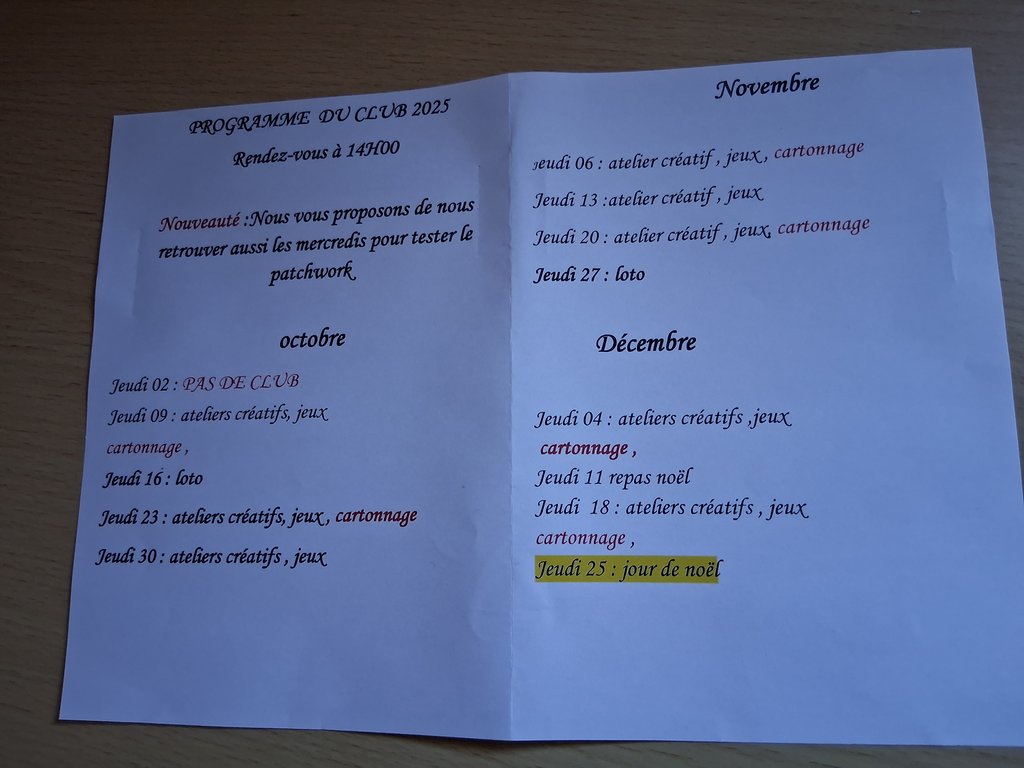 PROGRAMME DU CLUB 2025
Rendez-vous à 14H00
Nouveauté :Nous vous proposons de nous
retrouver aussi les mercredis pour tester le
patchwork
octobre
Jeudi 02 : PAS DE CLUB
Jeudi 09 : ateliers créatifs, jeux
cartonnage ,
Jeudi 16 : loto
Jeudi 23 : ateliers créatifs, jeux , cartonnage
Jeudi 30 : ateliers créatifs , jeux
Novembre
Jeudi 06 : atelier créatif , jeux , cartonnage
Jeudi 13 :atelier créatif , jeux
Jeudi 20 : atelier créatif , jeux, cartonnage
Jeudi 27 : loto
Décembre
Jeudi 04 : ateliers créatifs ,jeux
cartonnage ,
Jeudi 11 repas noël
Jeudi 18 : ateliers créatifs , jeux
cartonnage ,
Jeudi 25 : jour de noël